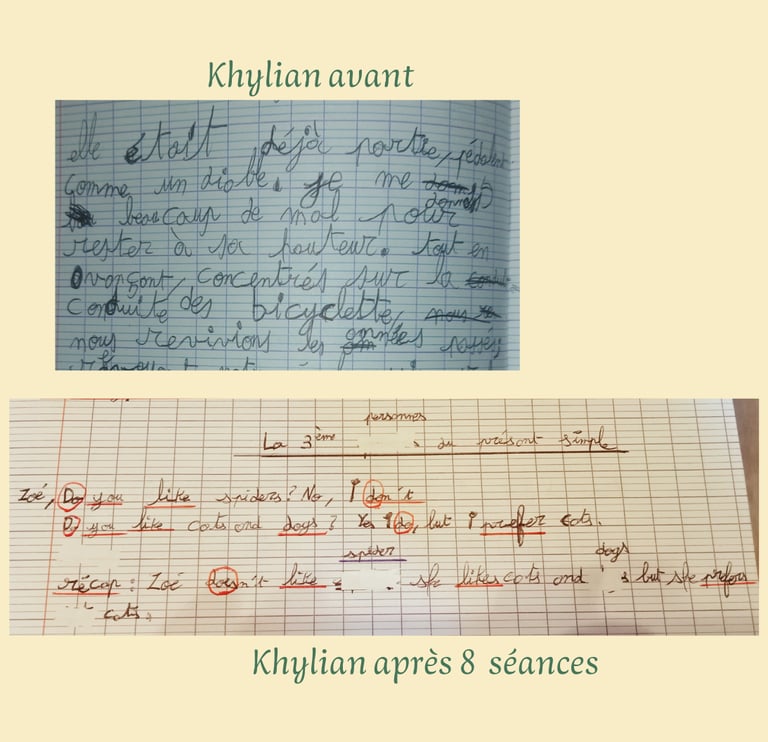 Khylian avant
elle était déjà partie, pédalant
comme un diable. je me donnais
beaucoup de mal pour
rester à sa hauteur. tout en
avançant, concentrés sur la
conduite des bicyclette,
nous revivions les années passés
personnes
La 3ème du présent simple
Zoé, Do you like spiders? No, I don't
Do you like cats and dogs? Yes I do, but I prefer cats.
spider dogs
récap: Zoé doesn't like she likes cats and but she prefers
cats.
Khylian après 8 séances